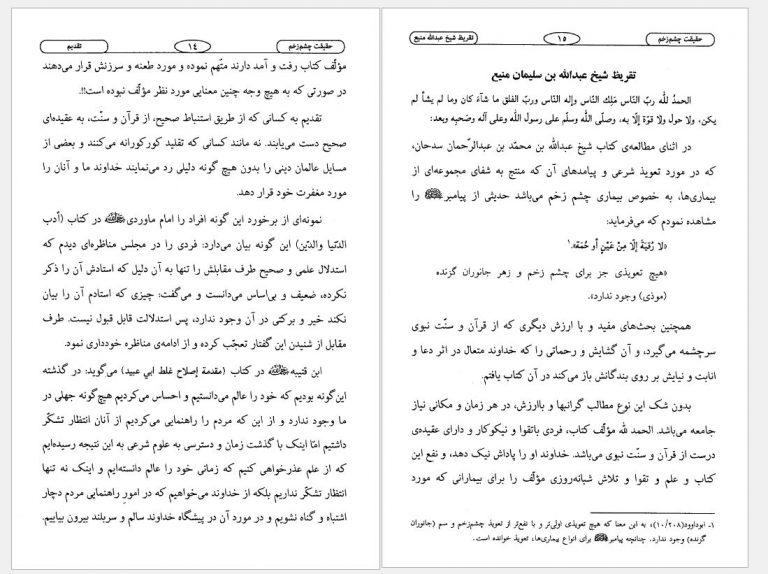 حقیقت چشم‌زخم
۱۴
تقدیم
مؤلّف کتاب رفت و آمد دارند متّهم نموده و مورد طعنه و سرزنش قرار می‌دهند
در صورتی که به هیچ وجه چنین معنایی مورد نظر مؤلّف نبوده است!!.
تقدیم به کسانی که از طریق استنباط صحیح، از قرآن و سنّت، به عقیده‌ای
صحیح دست می‌یابند. نه مانند کسانی که تقلید کورکورانه می‌کنند و بعضی از
مسایل عالمان دینی را بدون هیچ گونه دلیلی رد می‌نمایند خداوند ما و آنان را
مورد مغفرت خود قرار دهد.
نمونه‌ای از برخورد این گونه افراد را امام ماوردی در کتاب (أدب
الدّنیا والدّین) این گونه بیان می‌دارد: فردی را در مجلس مناظره‌ای دیدم که
استدلال علمی و صحیح طرف مقابلش را تنها به آن دلیل که استادش آن را ذکر
نکرده، ضعیف و بی‌اساس می‌دانست و می‌گفت: چیزی که استادم آن را بیان
نکند خیر و برکتی در آن وجود ندارد، پس استدلالت قابل قبول نیست. طرف
مقابل از شنیدن این گفتار تعجّب کرده و از ادامه‌ی مناظره خودداری نمود.
ابن قتیبه در کتاب (مقدمة إصلاح غلط ابي عبید) می‌گوید: در گذشته
این‌گونه بودیم که خود را عالم می‌دانستیم و احساس می‌کردیم هیچ‌گونه جهلی در
ما وجود ندارد و از این که مردم را راهنمایی می‌کردیم از آنان انتظار تشکّر
داشتیم امّا اینک با گذشت زمان و دسترسی به علوم شرعی به این نتیجه رسیده‌ایم
که از علم عذرخواهی کنیم که زمانی خود را عالم دانسته‌ایم و اینک نه تنها
انتظار تشکّر نداریم بلکه از خداوند می‌خواهیم که در امورِ راهنمایی مردم دچار
اشتباه و گناه نشویم و در مورد آن در پیشگاه خداوند سالم و سربلند بیرون بیاییم.
حقیقت چشم‌زخم
۱۵
تقریظ شیخ عبدالله منیع
تقریظ شیخ عبدالله بن سلیمان منیع
الحمدُ للّه ربّ النّاس مَلِك النّاس وإله النّاس وربّ الفلق ما شآءَ كان وما لم يشأ لم
يكن، ولا حول ولا قوّة إلّا به، وصلّى اللّه وسلّم على رسول اللّه وعلى آله وصَحبِه وبعد:
در اثنای مطالعه‌ی کتاب شیخ عبدالله بن محمّد بن عبدالرّحمان سدحان،
که در مورد تعویذ شرعی و پیامدهای آن که منتج به شفای مجموعه‌ای از
بیماری‌ها، به خصوص بیماری چشم زخم می‌باشد حدیثی از پیامبرﷺ را
مشاهده نمودم که می‌فرماید:
«لا رُقيَةَ إلّا مِنْ عَيْنٍ أو حُمَة».۱
«هیچ تعویذی جز برای چشم زخم و زهر جانوران گزنده
(موذی) وجود ندارد».
همچنین بحث‌های مفید و با ارزش دیگری که از قرآن و سنّت نبوی
سرچشمه می‌گیرد، و آن گشایش و رحماتی را که خداوند متعال در اثر دعا و
انابت و نیایش بر روی بندگانش باز می‌کند در آن کتاب یافتم.
بدون شک این نوع مطالب گرانبها و باارزش، در هر زمان و مکانی نیاز
جامعه می‌باشد. الحمد لله مؤلف کتاب، فردی باتقوا و نیکوکار و دارای عقیده‌ی
درست از قرآن و سنّت نبوی می‌باشد. خداوند او را پاداش نیک دهد، و نفع این
کتاب و علم و تقوا و تلاش شبانه‌روزی مؤلّف را برای بیمارانی که مورد
۱ـ ابوداوود(۱۰/۲۰۸)، به این معنا که هیچ تعویذی اولی‌تر و با نفع‌تر از تعویذ چشم‌زخم و سم (جانوران
گزنده) وجود ندارد. چنانچه پیامبرﷺ برای انواع بیماری‌ها، تعویذ خوانده است.